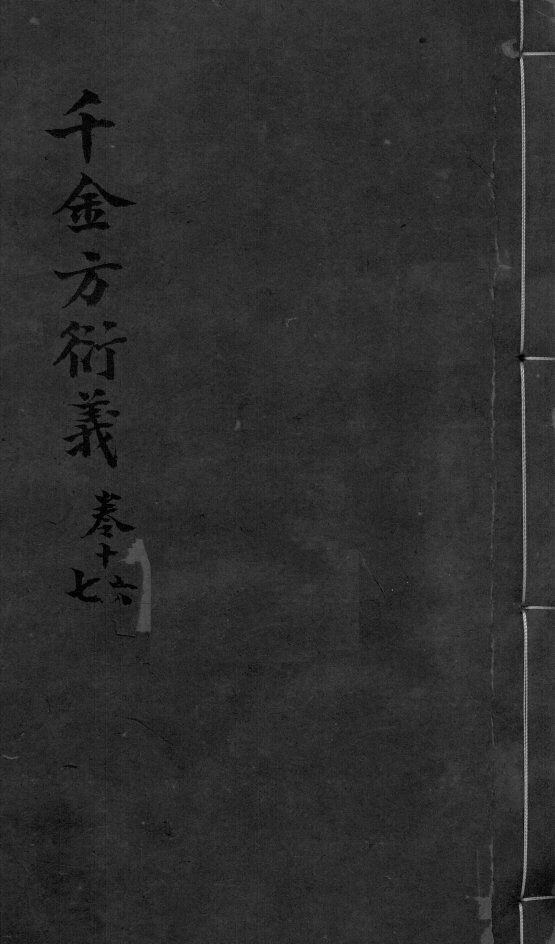 千金方衍義
卷十六
七